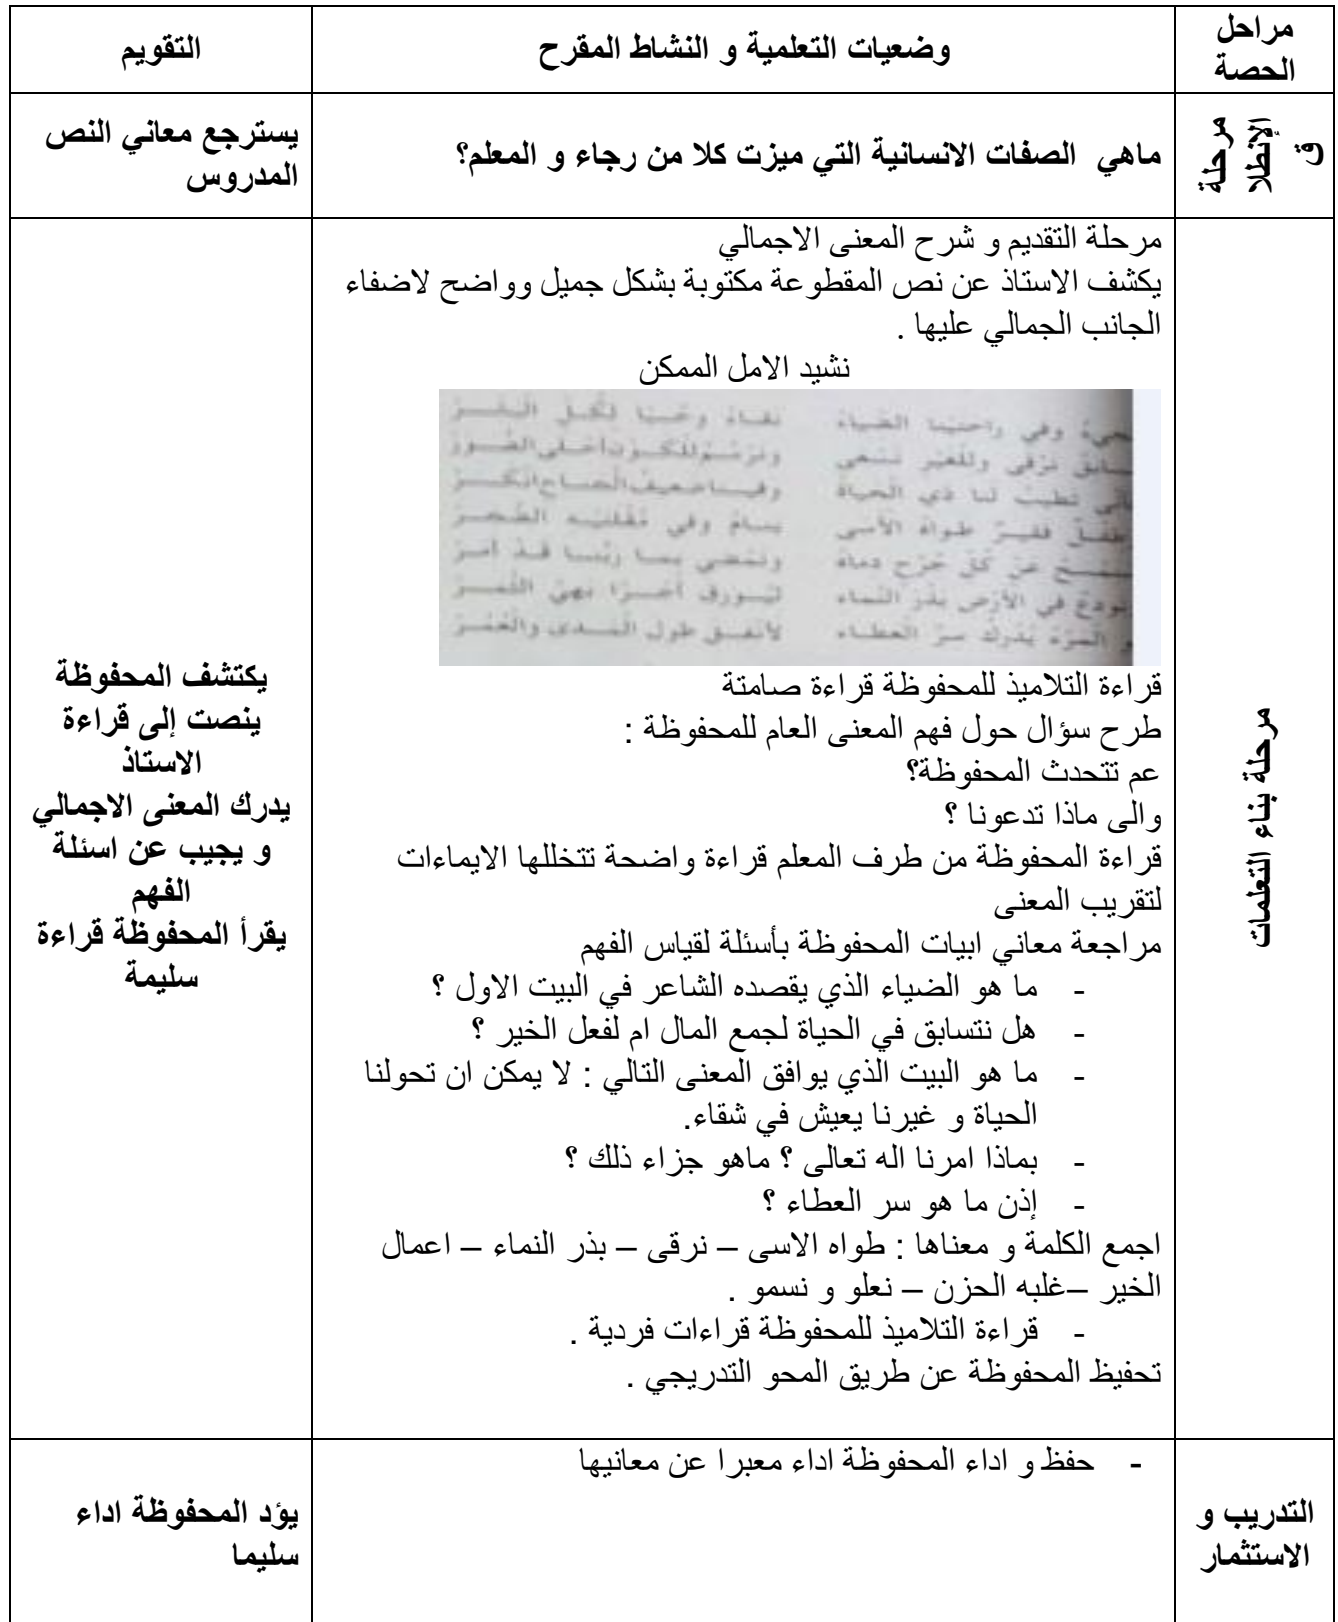 مراحل الحصة
وضعيات التعلمية و النشاط المقرح
التقويم
مرحلة الإنطلاق
ماهي الصفات الانسانية التي ميزت كلا من رجاء و المعلم؟
يسترجع معاني النص
المدروس
مرحلة بناء التعلمات
مرحلة التقديم و شرح المعنى الاجمالي
يكشف الاستاذ عن نص المقطوعة مكتوبة بشكل جميل وواضح لاضفاء
الجانب الجمالي عليها .
نشيد الامل الممكن
وفي راحتينا الضياء نقاء وحبا لكل البشر
نرقى وللخير نسعى ونرسم للكون أحلى الصور
تطيب لنا ذي الحياة وفينا ضعيف الجناح انكسر
فقير طواه الأسى ينام وفي مقلتيه الضجر
عن كل جرح دماه ونمضي بما ربنا قد أمر
في الأرض بذر النماء ليورق أجرا بهي الثمر
المرء يدرك سر العطاء لأنفق طول المدى والعمر
قراءة التلاميذ للمحفوظة قراءة صامتة
طرح سؤال حول فهم المعنى العام للمحفوظة :
عم تتحدث المحفوظة؟
والى ماذا تدعونا ؟
قراءة المحفوظة من طرف المعلم قراءة واضحة تتخللها الايماءات
لتقريب المعنى
مراجعة معاني ابيات المحفوظة بأسئلة لقياس الفهم
- ما هو الضياء الذي يقصده الشاعر في البيت الاول ؟
- هل نتسابق في الحياة لجمع المال ام لفعل الخير ؟
- ما هو البيت الذي يوافق المعنى التالي : لا يمكن ان تحولنا
الحياة و غيرنا يعيش في شقاء.
- بماذا امرنا اله تعالى ؟ ماهو جزاء ذلك ؟
- إذن ما هو سر العطاء ؟
اجمع الكلمة و معناها : طواه الاسى – نرقى – بذر النماء – اعمال
الخير –غلبه الحزن – نعلو و نسمو .
- قراءة التلاميذ للمحفوظة قراءات فردية .
تحفيظ المحفوظة عن طريق المحو التدريجي .
يكتشف المحفوظة
ينصت إلى قراءة
الاستاذ
يدرك المعنى الاجمالي
و يجيب عن اسئلة
الفهم
يقرأ المحفوظة قراءة
سليمة
التدريب و
الاستثمار
- حفظ و اداء المحفوظة اداء معبرا عن معانيها
يؤد المحفوظة اداء
سليما